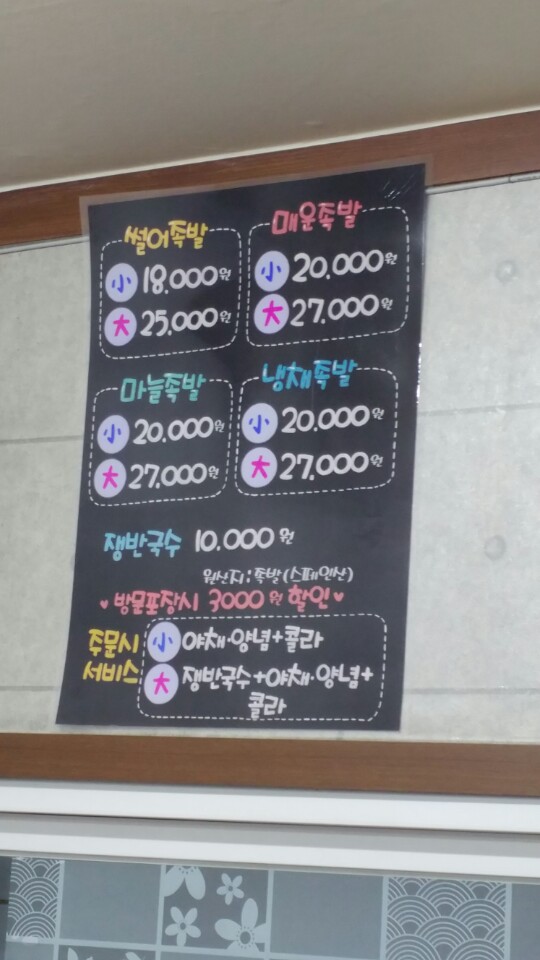 썰어족발
小 18,000원
大 25,000원
매운족발
小 20,000원
大 27,000원
마늘족발
小 20,000원
大 27,000원
냉채족발
小 20,000원
大 27,000원
쟁반국수 10,000원
원산지:족발(스페인산)
♥방문포장시 3000원 할인♥
주문시 서비스
小 야채·양념+콜라
大 쟁반국수+야채·양념+
콜라